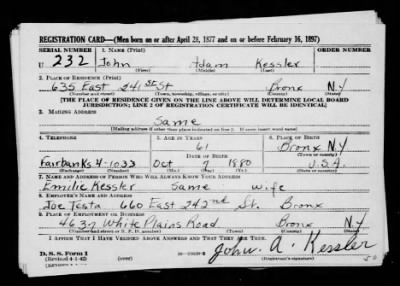 REGISTRATION CARD—(Men born on or after April 28, 1877 and on or before February 16, 1897)
SERIAL NUMBER 1. NAME (Print) ORDER NUMBER
U 232 John Adam Kessler
(First) (Middle) (Last)
2. PLACE OF RESIDENCE (Print)
635 East 241 st St Bronx N.Y
(Number and street) (Town, township, village, or city) (County) (State)
[THE PLACE OF RESIDENCE GIVEN ON THE LINE ABOVE WILL DETERMINE LOCAL BOARD
JURISDICTION; LINE 2 OF REGISTRATION CERTIFICATE WILL BE IDENTICAL]
3. MAILING ADDRESS
Same
[Mailing address if other than place indicated on line 2. If same insert word same]
4. TELEPHONE 5. AGE IN YEARS 6. PLACE OF BIRTH
61 Bronx N.Y
DATE OF BIRTH (Town or county)
Fairbanks 4-1033 Oct 7 1880 U.S.A.
(Exchange) (Number) (Mo.) (Day) (Yr.) (State or country)
7. NAME AND ADDRESS OF PERSON WHO WILL ALWAYS KNOW YOUR ADDRESS
Emilie Kessler Same wife
8. EMPLOYER'S NAME AND ADDRESS
Joe Testa 660 East 242nd St. Bronx
9. PLACE OF EMPLOYMENT OR BUSINESS
4637 White Plains Road Bronx N.Y
(Number and street or R. F. D. number) (Town) (County) (State)
I AFFIRM THAT I HAVE VERIFIED ABOVE ANSWERS AND THAT THEY ARE TRUE.
D. S. S. Form 1
(Revised 4-1-42)
John A. Kessler
(Registrant's signature)